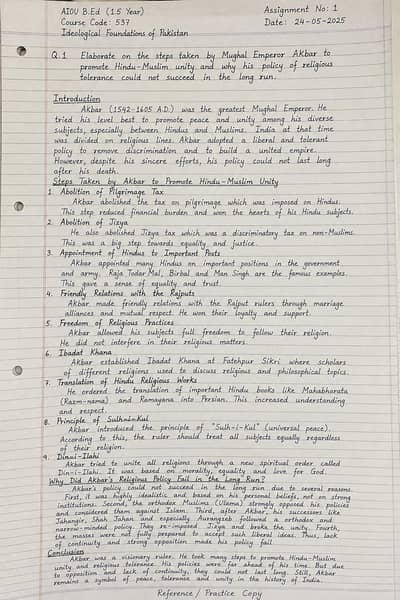 AIOU B.Ed (1.5 Year)
Assignment No: 1
Course Code: 537
Date: 24-05-2025
Ideological Foundations of Pakistan
Q.1 Elaborate on the steps taken by Mughal Emperor Akbar to
promote Hindu-Muslim unity and why his policy of religious
tolerance could not succeed in the long run.
Introduction
Akbar (1542-1605 A.D.) was the greatest Mughal Emperor. He
tried his level best to promote peace and unity among his diverse
subjects, especially between Hindus and Muslims. India at that time
was divided on religious lines. Akbar adopted a liberal and tolerant
policy to remove discrimination and to build a united empire.
However, despite his sincere efforts, his policy could not last long
after his death.
Steps Taken by Akbar to Promote Hindu-Muslim Unity
1. Abolition of Pilgrimage Tax
Akbar abolished the tax on pilgrimage which was imposed on Hindus.
This step reduced financial burden and won the hearts of his Hindu subjects.
2. Abolition of Jizya
He also abolished Jizya tax which was a discriminatory tax on non-Muslims.
This was a big step towards equality and justice.
3. Appointment of Hindus to Important Posts
Akbar appointed many Hindus on important positions in the government
and army. Raja Todar Mal, Birbal and Man Singh are the famous examples.
This gave a sense of equality and trust.
4. Friendly Relations with the Rajputs
Akbar made friendly relations with the Rajput rulers through marriage
alliances and mutual respect. He won their loyalty and support.
5. Freedom of Religious Practices
Akbar allowed his subjects full freedom to follow their religion.
He did not interfere in their religious matters.
6. Ibadat Khana
Akbar established Ibadat Khana at Fatehpur Sikri where scholars
of different religions used to discuss religious and philosophical topics.
7. Translation of Hindu Religious Works
He ordered the translation of important Hindu books like Mahabharata
(Razm-nama) and Ramayana into Persian. This increased understanding
and respect.
8. Principle of Sulh-i-Kul
Akbar introduced the principle of "Sulh-i-Kul" (universal peace).
According to this, the ruler should treat all subjects equally regardless
of their religion.
9. Din-i-Ilahi
Akbar tried to unite all religions through a new spiritual order called
Din-i-Ilahi. It was based on morality, equality and love for God.
Why Did Akbar's Religious Policy Fail in the Long Run?
Akbar's policy could not succeed in the long run due to several reasons.
First, it was highly idealistic and based on his personal beliefs, not on strong
institutions. Second, the orthodox Muslims (Ulama) strongly opposed his policies
and considered them against Islam. Third, after Akbar, his successors like
Jahangir, Shah Jahan and especially Aurangzeb followed a orthodox and
narrow-minded policy. They re-imposed Jizya and broke the unity. Fourth,
the masses were not fully prepared to accept such liberal ideas. Thus, lack
of continuity and strong opposition made his policy fail.
Conclusion
Akbar was a visionary ruler. He took many steps to promote Hindu-Muslim
unity and religious tolerance. His policies were far ahead of his time. But due
to opposition and lack of continuity, they could not last long. Still, Akbar
remains a symbol of peace, tolerance and unity in the history of India.
Reference / Practice Copy